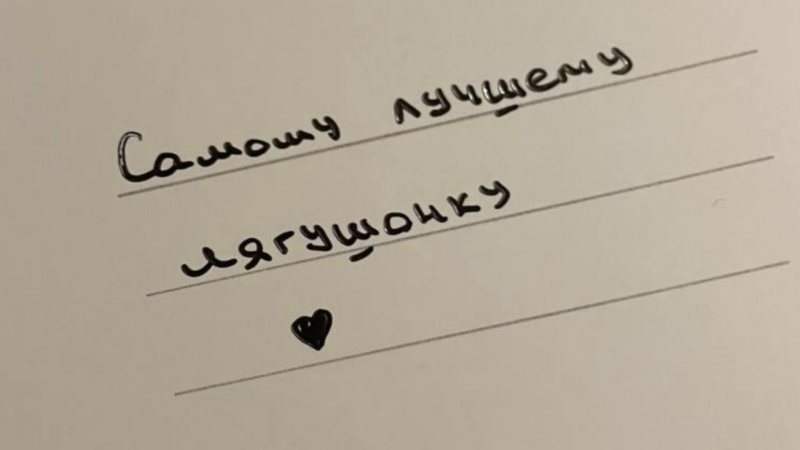 Самому лучшему
лягушонку
♥